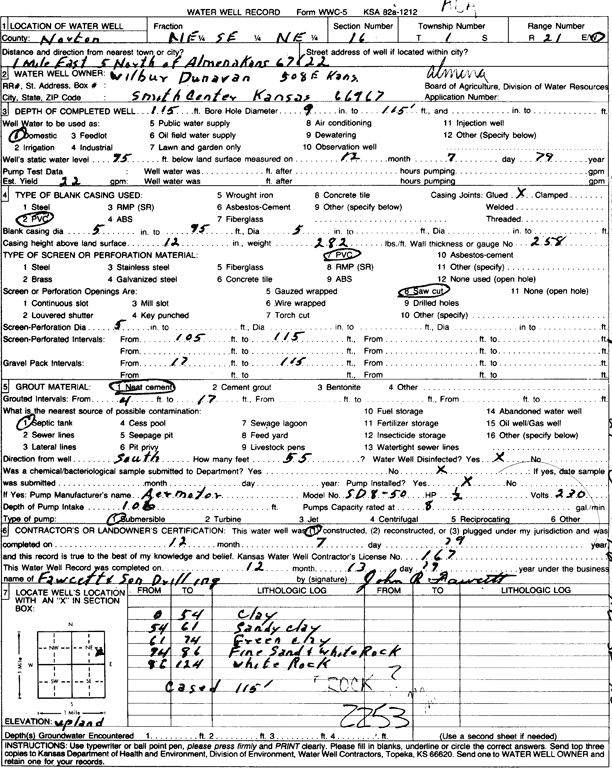 WATER WELL RECORD Form WWC-5 KSA 82a-1212
1 LOCATION OF WATER WELL Fraction Section Number Township Number Range Number
County: Norton NE ¼ SE ¼ NE ¼ 16 T 1 S R 21 E/W
Distance and direction from nearest town or city? Street address of well if located within city?
1 Mile East 5 North of Almena Kans 67622
2 WATER WELL OWNER: Wilbur Dunavan 508 E Kans. Almena
RR#, St. Address, Box # : Board of Agriculture, Division of Water Resources
City, State, ZIP Code : Smith Center Kansas 66967 Application Number:
3 DEPTH OF COMPLETED WELL 115 ft. Bore Hole Diameter 9 in. to 115' ft., and in. to ft.
Well Water to be used as: 5 Public water supply 8 Air conditioning 11 Injection well
1 Domestic 3 Feedlot 6 Oil field water supply 9 Dewatering 12 Other (Specify below)
2 Irrigation 4 Industrial 7 Lawn and garden only 10 Observation well
Well's static water level 75 ft. below land surface measured on 12 month 7 day 79 year
Pump Test Data : Well water was ft. after hours pumping gpm
Est. Yield 22 gpm: Well water was ft. after hours pumping gpm
4 TYPE OF BLANK CASING USED: 5 Wrought iron 8 Concrete tile Casing Joints: Glued X Clamped
1 Steel 3 RMP (SR) 6 Asbestos-Cement 9 Other (specify below) Welded
2 PVC 4 ABS 7 Fiberglass Threaded
Blank casing dia 5 in. to 95 ft., Dia 5 in. to ft., Dia in. to ft.
Casing height above land surface 12 in., weight 282 lbs./ft. Wall thickness or gauge No 258
TYPE OF SCREEN OR PERFORATION MATERIAL: 7 PVC 10 Asbestos-cement
1 Steel 3 Stainless steel 5 Fiberglass 8 RMP (SR) 11 Other (specify)
2 Brass 4 Galvanized steel 6 Concrete tile 9 ABS 12 None used (open hole)
Screen or Perforation Openings Are: 5 Gauzed wrapped 8 Saw cut 11 None (open hole)
1 Continuous slot 3 Mill slot 6 Wire wrapped 9 Drilled holes
2 Louvered shutter 4 Key punched 7 Torch cut 10 Other (specify)
Screen-Perforation Dia 5 in. to ft., Dia in. to ft., Dia in to ft.
Screen-Perforated Intervals: From 105 ft. to 115 ft., From ft. to ft.
From ft. to ft., From ft. to ft.
Gravel Pack Intervals: From 17 ft. to 115 ft., From ft. to ft.
From ft. to ft., From ft. to ft.
5 GROUT MATERIAL: 1 Neat cement 2 Cement grout 3 Bentonite 4 Other
Grouted Intervals: From 4 ft. to 17 ft., From ft. to ft., From ft. to ft.
What is the nearest source of possible contamination: 10 Fuel storage 14 Abandoned water well
1 Septic tank 4 Cess pool 7 Sewage lagoon 11 Fertilizer storage 15 Oil well/Gas well
2 Sewer lines 5 Seepage pit 8 Feed yard 12 Insecticide storage 16 Other (specify below)
3 Lateral lines 6 Pit privy 9 Livestock pens 13 Watertight sewer lines
Direction from well South How many feet 55 ? Water Well Disinfected? Yes X No
Was a chemical/bacteriological sample submitted to Department? Yes No X If yes, date sample
was submitted month day year: Pump Installed? Yes X No
If Yes: Pump Manufacturer's name Aermotor Model No. SD8-50 HP ½ Volts 230
Depth of Pump Intake ft. Pumps Capacity rated at 8 gal./min
Type of pump: 1 Submersible 2 Turbine 3 Jet 4 Centrifugal 5 Reciprocating 6 Other
6 CONTRACTOR'S OR LANDOWNER'S CERTIFICATION: This water well was (1) constructed, (2) reconstructed, or (3) plugged under my jurisdiction and was
completed on 12 month 7 day 79 year
and this record is true to the best of my knowledge and belief. Kansas Water Well Contractor's License No. 167
This Water Well Record was completed on 12 month 13 day 79 year under the business
name of Fawcett & Son Drilling by (signature) John R Fawcett
7 LOCATE WELL'S LOCATION WITH AN "X" IN SECTION BOX: FROM TO LITHOLOGIC LOG FROM TO LITHOLOGIC LOG
N
NW NE
W E
SW SE
S
1 Mile
1 Mile
0 54 Clay
54 61 Sandy clay
61 74 Green clay
74 86 Fine Sand & white Rock
86 124 white Rock
Cased 115' ROCK ?
2253
ELEVATION: upland
Depth(s) Groundwater Encountered 1 ft. 2 ft. 3 ft. 4 ft. (Use a second sheet if needed)
INSTRUCTIONS: Use typewriter or ball point pen, please press firmly and PRINT clearly. Please fill in blanks, underline or circle the correct answers. Send top three
copies to Kansas Department of Health and Environment, Division of Environment, Water Well Contractors, Topeka, KS 66620. Send one to WATER WELL OWNER and
retain one for your records.